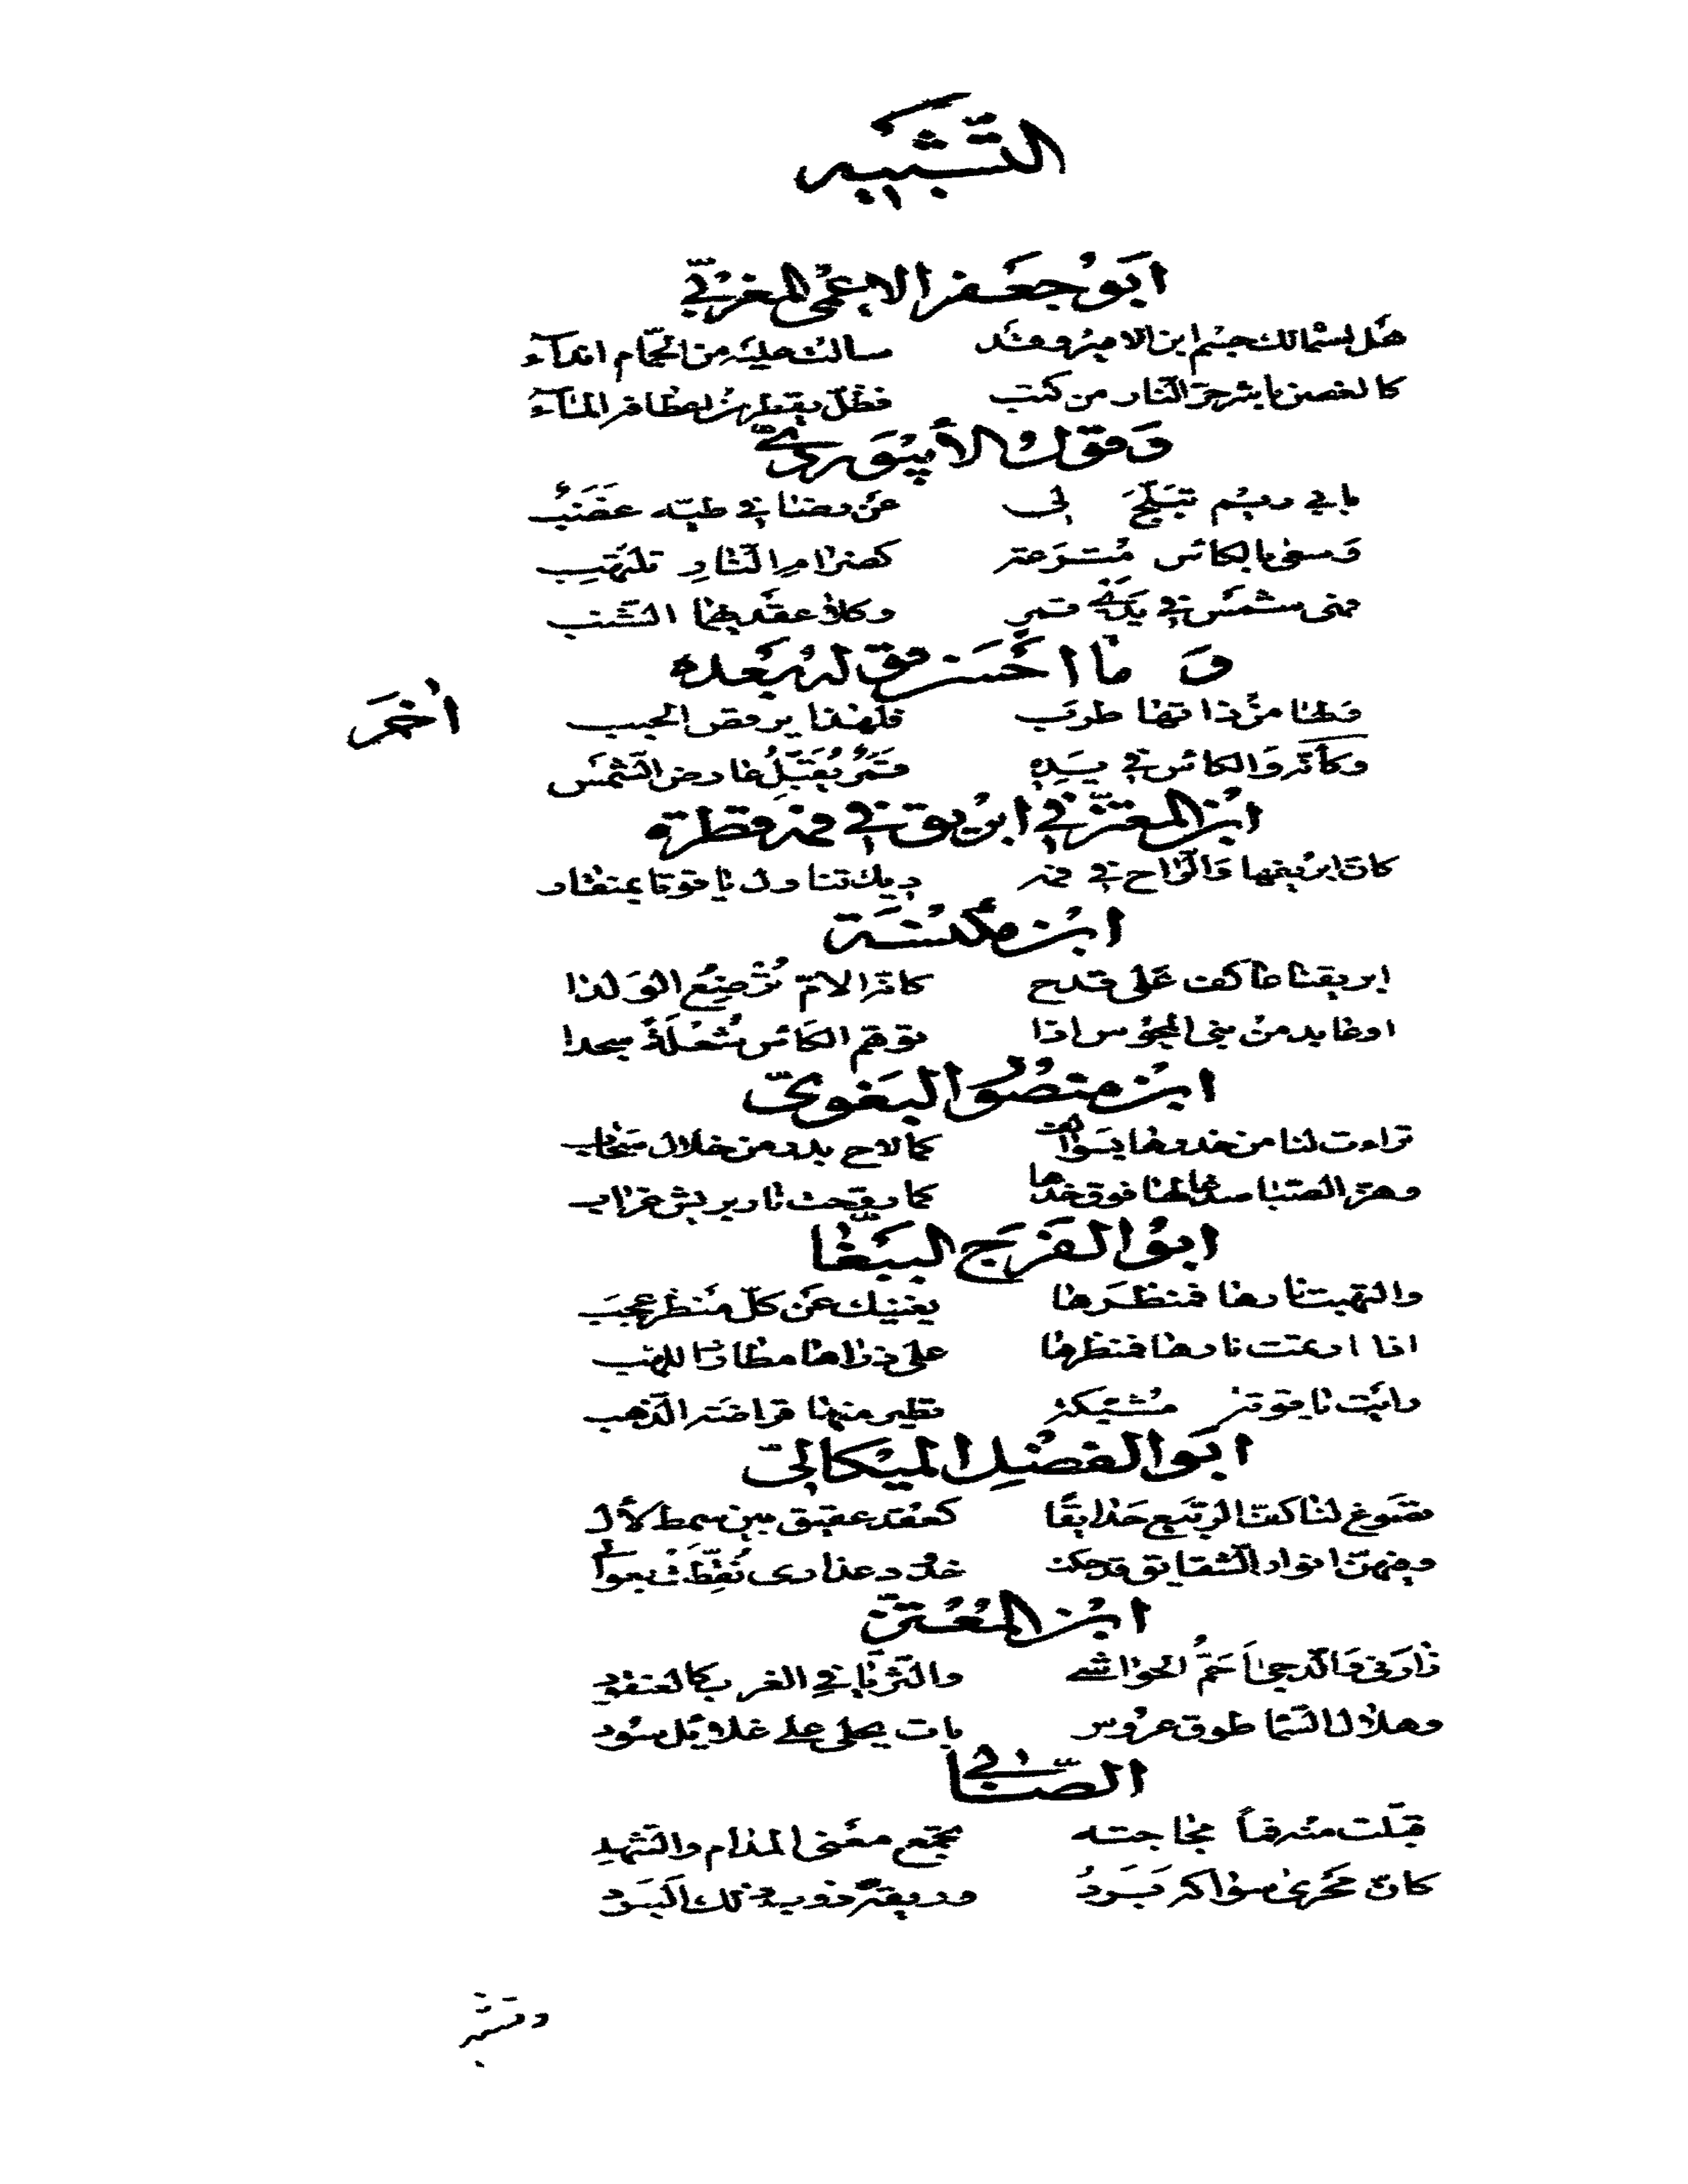 التشبيه
ابو جعفر الاعمى المغربي
هل استمالك جسم ابن الامير وقد سالت عليه من الحمام انداء
كالغصن باشر حر النار من كثب فظل يقطر من اعطافه الماء
وقول الأبيوردي
بابي ريم تبلج لي عن رضا في طيه غضب
وسعى بالكاس مترعة كضرام النار تلتهب
فهي شمس في يدي قمر وكلا عقديهما الشنب
وما احسن قوله بعده
ولها من ذاتها طرب فلهذا يرقص الحبب
اخر
وكأنه والكاس في يده قمر يقبل عارض الشمس
ابن المعتز في ابريق في فمه قطرة
كان ابريقها والراح في فمه ديك تناول ياقوتا بمنقار
ابن مكنسة
ابريقنا عاكف على قدح كانه الام ترضع الولدا
او عابد من بني المجوس اذا توهم الكاس شعلة سجدا
ابن منصور البغوي
تراءت لنا من خدرها بسوالف كما لاح بدر من خلال سحاب
وهز الصبا صدغا لها فوق خدها كما روحت نار بريش غراب
ابو الفرج الببغا
والتهبت نارها فمنظرها يغنيك عن كل منظر عجب
اذا ارتمت نارها فمنظرها على ذراها مطارد اللهب
رايت ياقوتة مشبكة تطير منها قراضة الذهب
ابو الفضل الميكالي
تصوغ لنا كف الربيع حدايقا كعقد عقيق بين سمط لآل
وفيهن انوار الشقايق قد حكت خدود عذارى نقطت بغوالي
ابن المعتز
زارني والدجى احم الحواشي والثريا في الغرب كالعنقود
وهلال السما طوق عروس بات يجلى على غلايل سود
الصابي
قبلت منه فما مجاجته تجمع معنى المدام والشهد
كان مجرى سواكه برد وريقه ذوب ذلك البرد